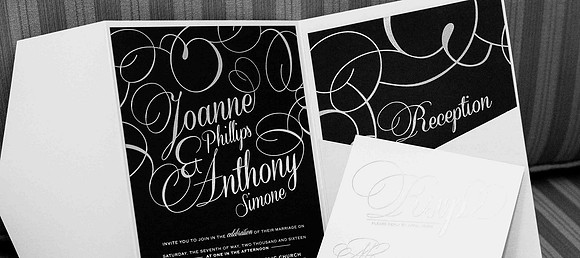 Joanne
Phillips
&
Anthony
Simone
INVITE YOU TO JOIN IN THE celebration OF THEIR MARRIAGE ON
SATURDAY, THE SEVENTH OF MAY, TWO THOUSAND AND SIXTEEN
AT ONE IN THE AFTERNOON
CHURCH
Reception
Rsvp